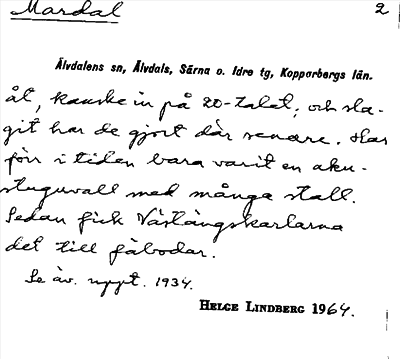 Mardal
2
Älvdalens sn, Älvdals, Särna o. Idre tg, Kopparbergs län.
åt, kanske in på 20-talet, och sla-
git har de gjort där senare. Har
förr i tiden bara varit en
stuguvall med många stall.
Sedan fick Västängskarlarna
det till fäbodar.
Se äv. uppt. 1934.
HELGE LINDBERG 1964.